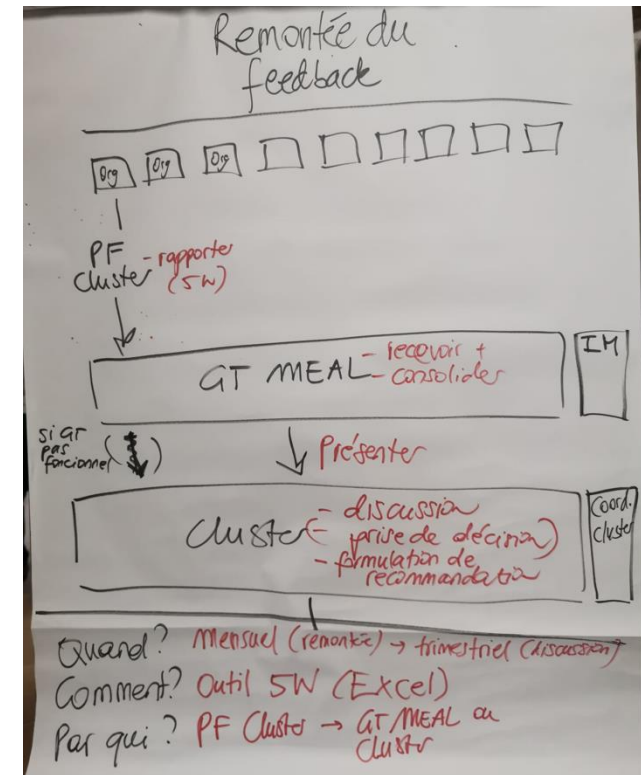 Remontée du
feedback
Org Org Org
PF
Cluster
- rapporter
(5W)
GT MEAL
- recevoir +
- consolider
IM
si GT
pas
foncionnel
Présenter
Cluster
- discussion
(- prise de décision)
- formulation de
recommandation
Coord.
Cluster
Quand? mensuel (remontée) → trimestriel (discussion)
Comment? Outil 5W (Excel)
Par qui? PF Cluster → GT MEAL ou
Cluster